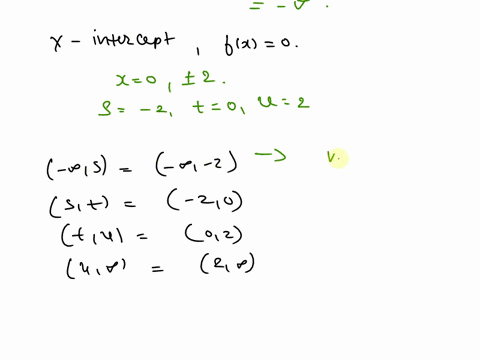 = -
x - intercept , f(x) = 0.
x = 0 , ± 2 .
s = - 2, t = 0, u = 2
(-∞, s) = (-∞, -2) → v.
(s, t) = (-2, 0)
(t, u) = (0, 2)
(u, ∞) = (2, ∞)